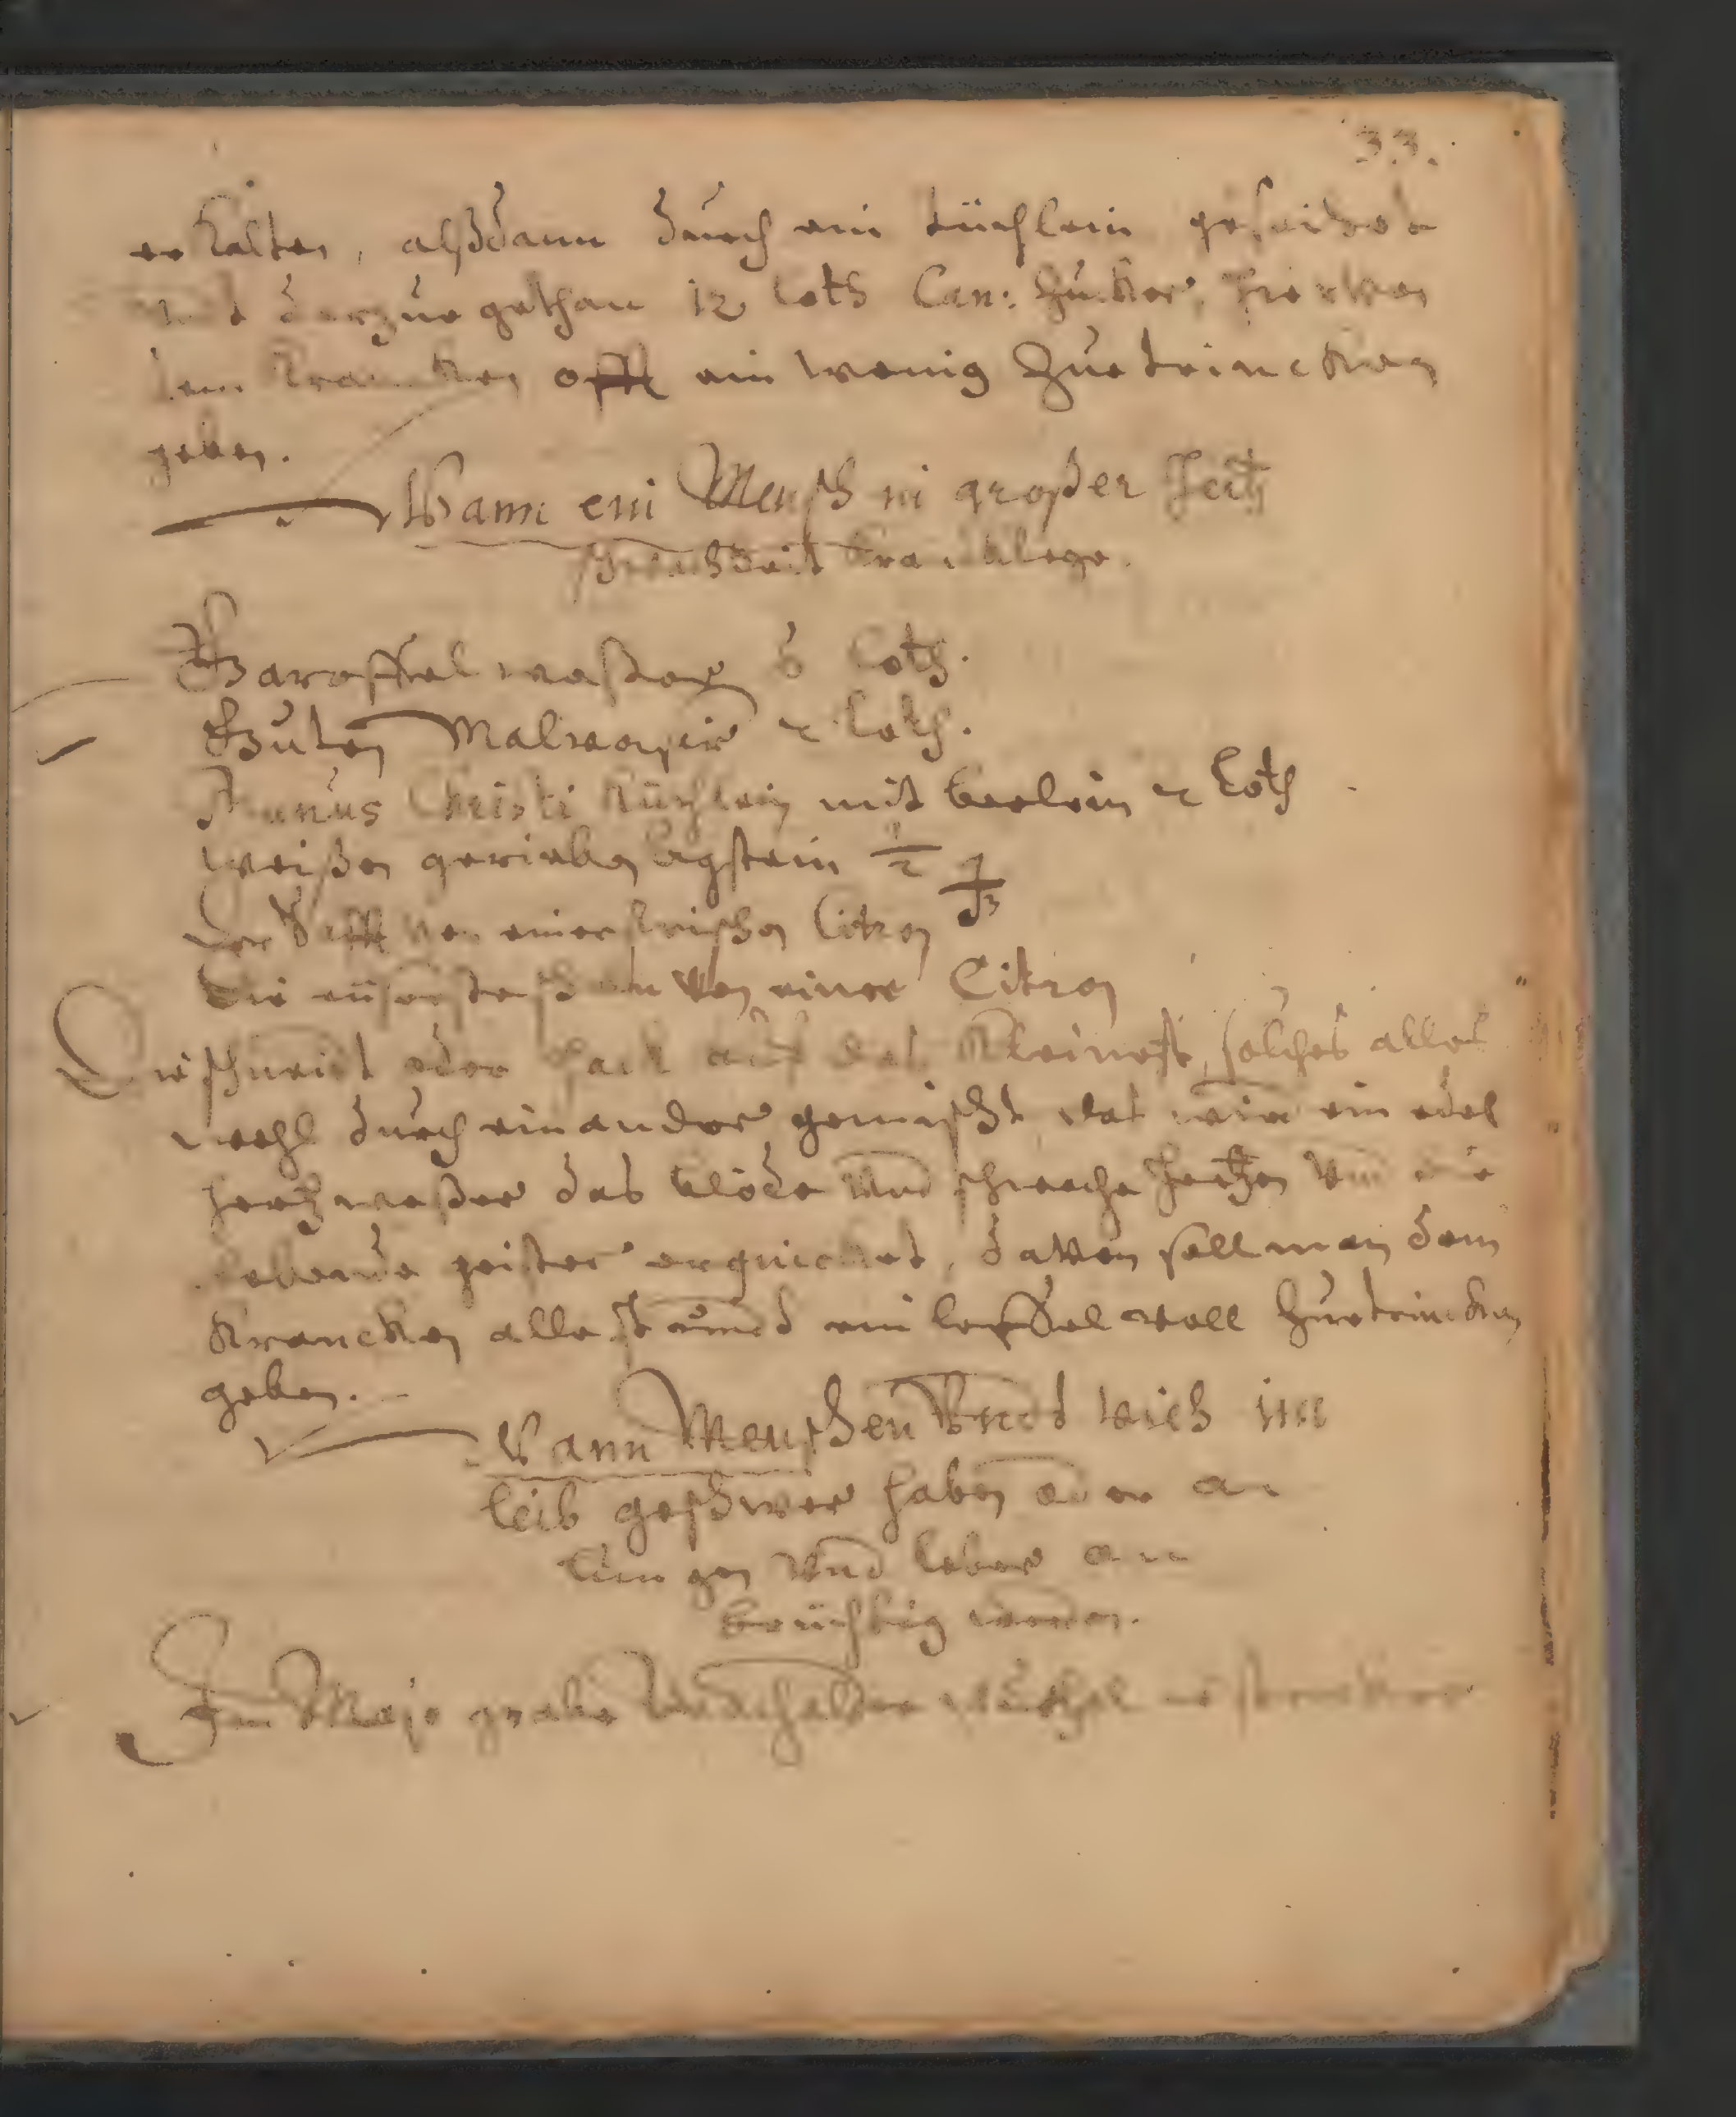 33.
erkalten, alßdann durch ein tüchlein geseihet
und darzue gethan 12 loth Can: Zucker, hiervon
dem krancken offt ein wenig Zuetrincken
geben.
Wann ein Mensch in großer hertz
schwachheit kranckh lege.
wasser 6 loth.
Guten Malvasier 2 loth.
Manus Christi küchlein mit berlein 2 loth
weißen gerieben Agstein ½
Der Safft von einer frischen Citron
Die eüserste schalen von einer Citron
Die schneidt oder hack auf das kleinest, solches alles
wohl durch einander gemischt, dat wirt ein edel
hertz waßer das blöde und schwache hertzen und die
lebende geister erquicket, davon soll man dem
krancken alle stund ein leffel voll Zuetrincken
geben.
Wann Menschen Vnd Vieh im
leib geschwer haben oder an
Lungen und leber an
brüchtig werden.
Im Majo grabe wurtzel